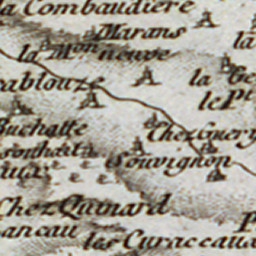 la Combaudiere
Marans
la M.on neuve
la
ablouze
la
le Pt
Buchatte
Chez Guery
Souvignon
Chez Quinard
anceau
las Curaceaux